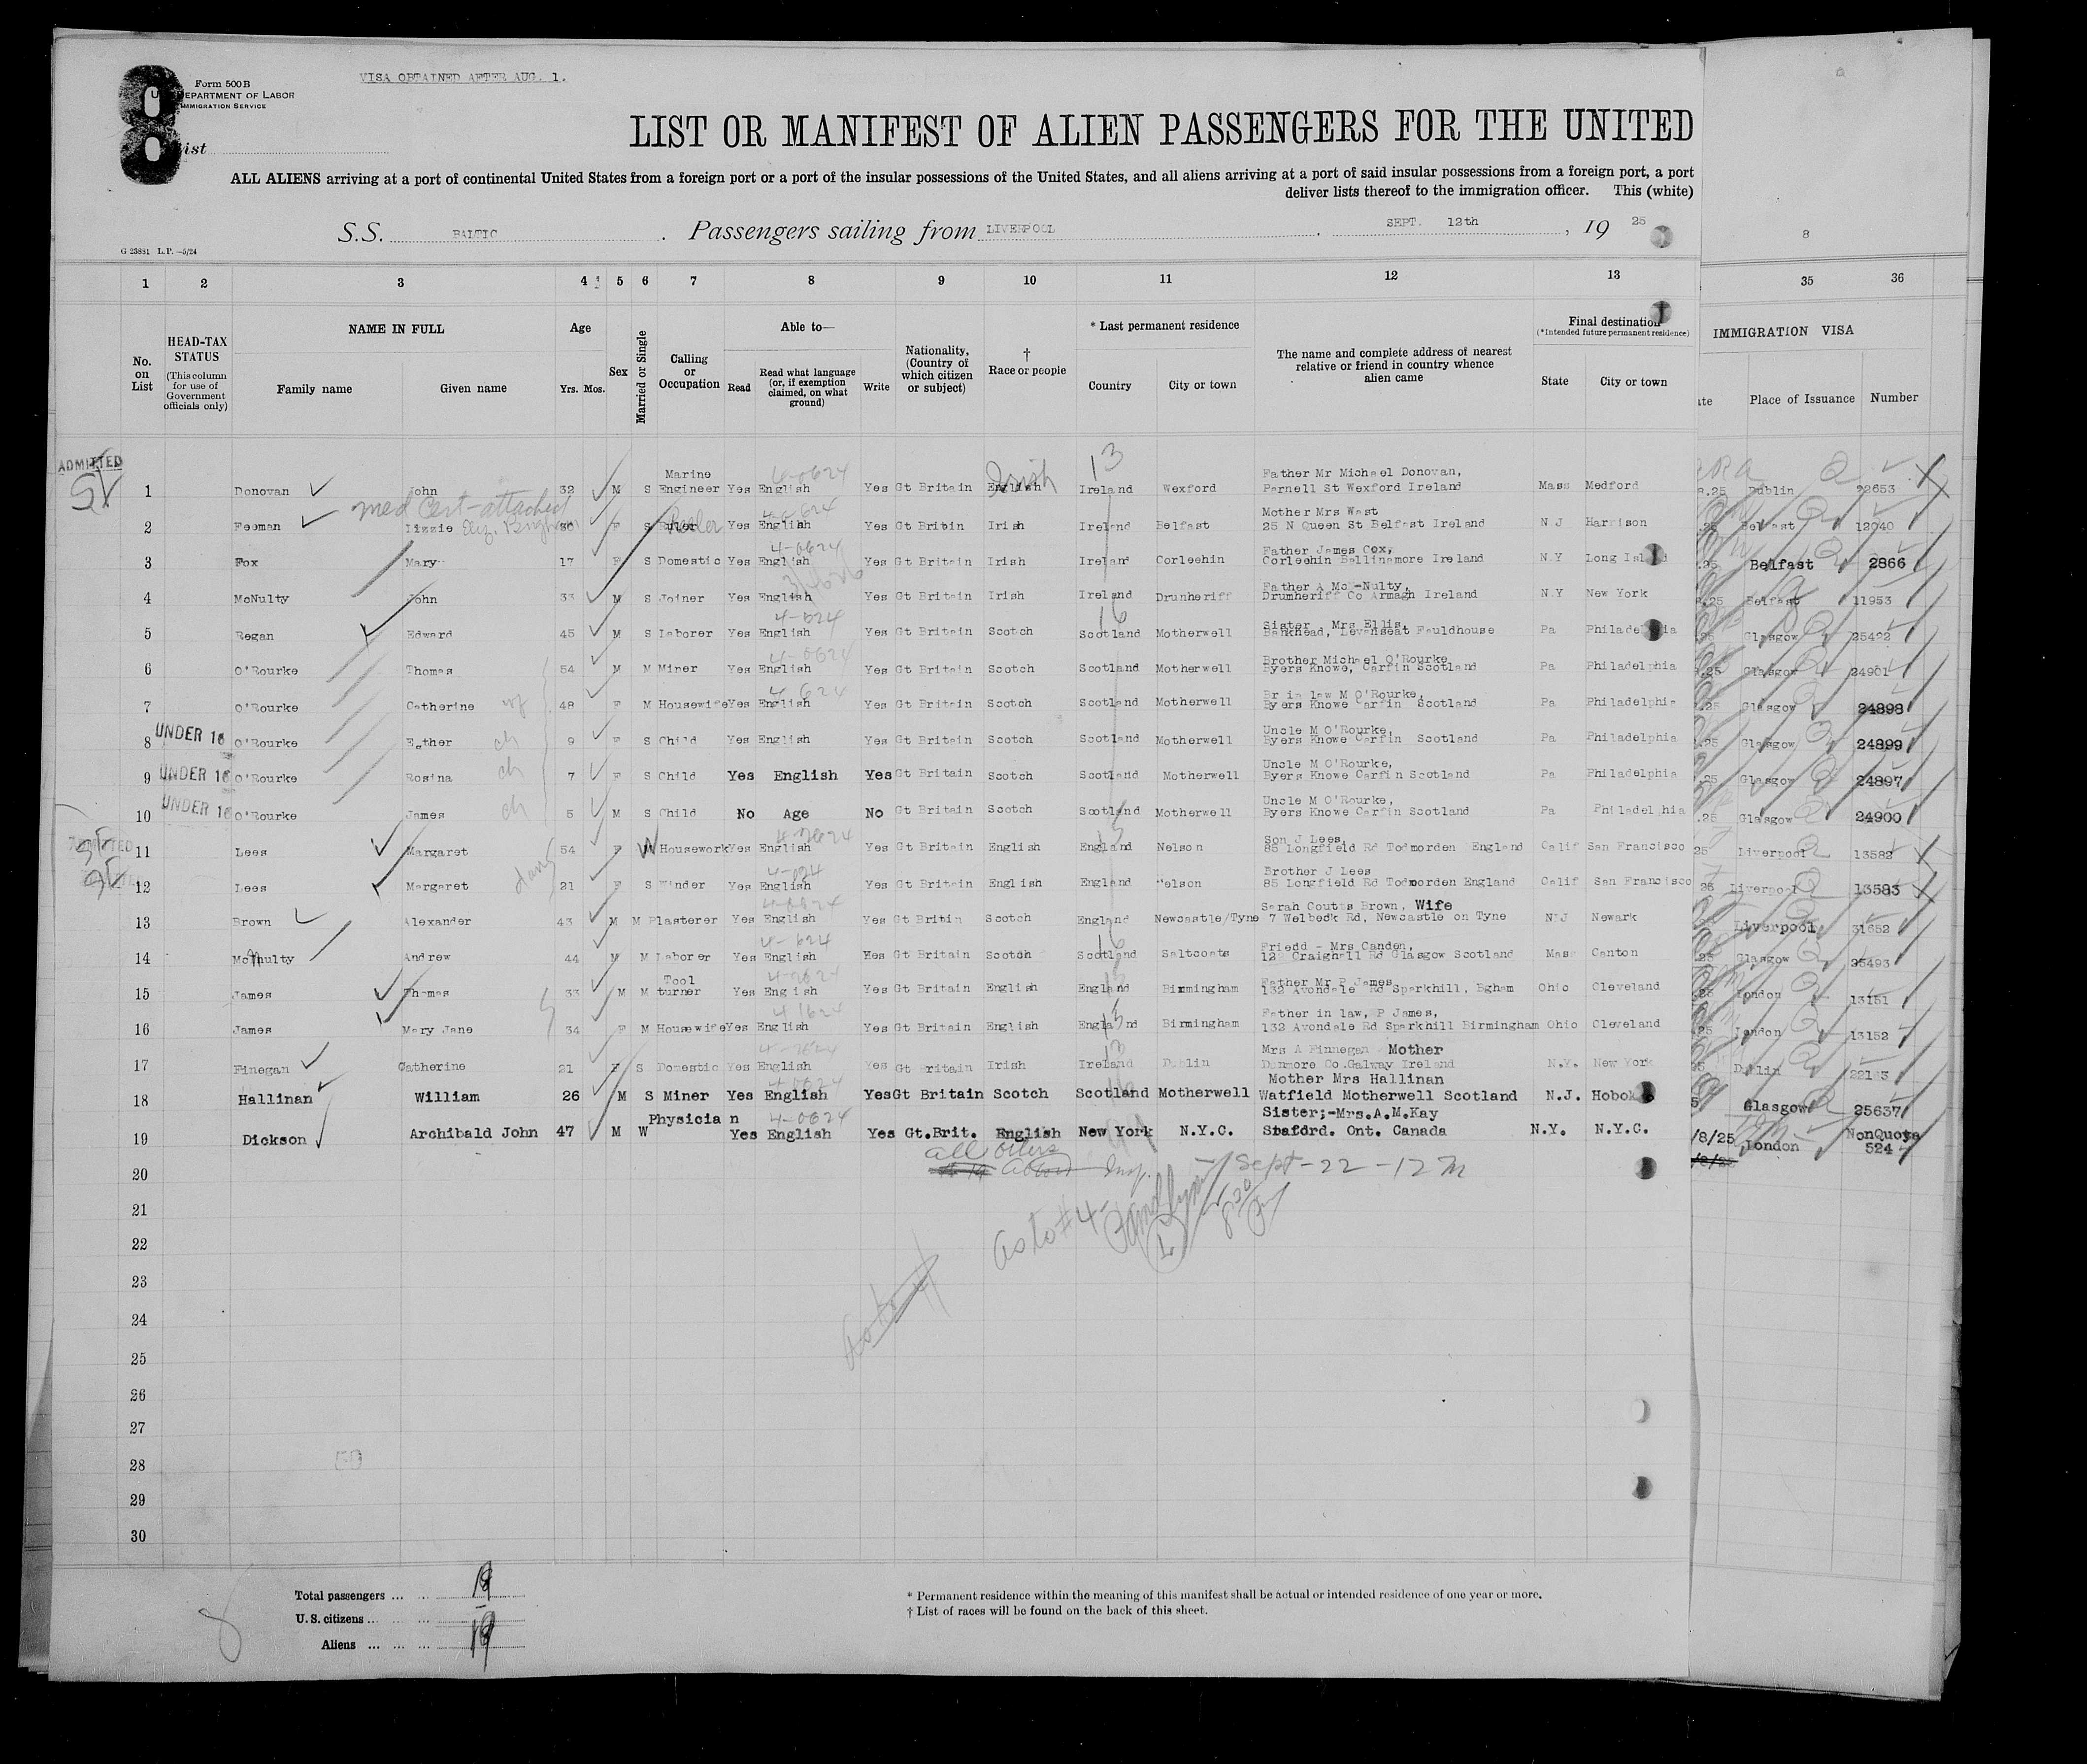 8
8
Form 500 B
VISA OBTAINED AFTER AUG. 1.
U. DEPARTMENT OF LABOR
IMMIGRATION SERVICE
List
LIST OR MANIFEST OF ALIEN PASSENGERS FOR THE UNITED
ALL ALIENS arriving at a port of continental United States from a foreign port or a port of the insular possessions of the United States, and all aliens arriving at a port of said insular possessions from a foreign port, a port
deliver lists thereof to the immigration officer. This (white)
S.S. BALTIC . Passengers sailing from LIVERPOOL . SEPT. 12th , 19 25
8
G 23881 L.P. —5/24
1 2 3 4 5 6 7 8 9 10 11 12 13 35 36
No. on List
HEAD-TAX STATUS (This column for use of Government officials only)
NAME IN FULL
Family name Given name
Age
Yrs. Mos.
Sex
Married or Single
Calling or Occupation
Able to—
Read Read what language (or, if exemption claimed, on what ground) Write
Nationality, (Country of which citizen or subject)
† Race or people
* Last permanent residence
Country City or town
The name and complete address of nearest relative or friend in country whence alien came
Final destination
(*Intended future permanent residence)
State City or town
IMMIGRATION VISA
Place of Issuance Number
ADMITTED
Marine 4-0624 Irish 13 Father Mr Michael Donovan,
1 Donovan John 32 M S Engineer Yes English Yes Gt Britain English Ireland Wexford Parnell St Wexford Ireland Mass Medford Dublin 22653
med Cert-attached
Mother Mrs West
2 Feeman Lizzie 30 F S Ruler Yes English Yes Gt Britin Irish Ireland Belfast 25 N Queen St Belfast Ireland N J Harrison .25 Belfast 12040
4-0624 Father James Cox,
3 Fox Mary 17 F S Domestic Yes English Yes Gt Britain Irish Ireland Corleehin Corleehin Ballinamore Ireland N.Y Long Island .25 Belfast 2866
Father A Mc-Nulty,
4 McNulty John 33 M S Joiner Yes English Yes Gt Britain Irish Ireland Drunheriff Drumheriff Co Armagh Ireland N.Y New York .25 Belfast 11953
4-624 16 Sister, Mrs Ellis,
5 Regan Edward 45 M S Laborer Yes English Yes Gt Britain Scotch Scotland Motherwell Bankhead, Levenseat Fauldhouse Pa Philadelphia .25 Glasgow 25422
4-0624 Brother Michael O'Rourke
6 O'Rourke Thomas 54 M M Miner Yes English Yes Gt Britain Scotch Scotland Motherwell Byers Knowe, Carfin Scotland Pa Philadelphia .25 Glasgow 24901
4 624 Br in law M O'Rourke,
7 O'Rourke Catherine wf 48 F M Housewife Yes English Yes Gt Britain Scotch Scotland Motherwell Byers Knowe Carfin Scotland Pa Philadelphia .25 Glasgow 24898
UNDER 16 Uncle M O'Rourke,
8 O'Rourke Esther ch 9 F S Child Yes English Yes Gt Britain Scotch Scotland Motherwell Byers Knowe Carfin Scotland Pa Philadelphia .25 Glasgow 24899
UNDER 16 Uncle M O'Rourke,
9 O'Rourke Rosina ch 7 F S Child Yes English Yes Gt Britain Scotch Scotland Motherwell Byers Knowe Carfin Scotland Pa Philadelphia .25 Glasgow 24897
UNDER 16 Uncle M O'Rourke,
10 O'Rourke James ch 5 M S Child No Age No Gt Britain Scotch Scotland Motherwell Byers Knowe Carfin Scotland Pa Philadel hia .25 Glasgow 24900
Son J Lees,
11 Lees Margaret 54 F W Housework Yes English Yes Gt Britain English England Nelson 85 Longfield Rd Todmorden England Calif San Francisco 25 Liverpool 13582
4-024 Brother J Lees
12 Lees Margaret 21 F S Winder Yes English Yes Gt Britain English England Nelson 85 Longfield Rd Todmorden England Calif San Francisco 25 Liverpool 13583
4-0624 Sarah Coutts Brown, Wife
13 Brown Alexander 43 M M Plasterer Yes English Yes Gt Britin Scotch England Newcastle/Tyne 7 Welbedk Rd, Newcastle on Tyne N J Newark Liverpool 31652
4-624 16 Friedd - Mrs Canden,
14 McAnulty Andrew 44 M M Laborer Yes English Hes Gt Britain Scotch Scotland Saltcoats 122 Craighall Rd Glasgow Scotland Mass Canton 25 Glasgow 25493
Tool Father Mr P James
15 James Thomas 33 M M turner Yes Eng ish Yes Gt Britain English England Birmingham 132 Avondale Rd Sparkhill, Bgham Ohio Cleveland 25 London 13151
41624 Father in law, P James,
16 James Mary Jane 34 F M Housewife Yes English Yes Gt Britain English England Birmingham 132 Avondale Rd Sparkhill Birmingham Ohio Cleveland 25 London 13152
13 Mrs A Finnegan Mother
17 Finegan Catherine 21 F S Domestic Yes English Yes Gt Britain Irish Ireland Dublin Dunmore Co.Galway Ireland N.Y. New York Dublin
4-0624 Mother Mrs Hallinan
18 Hallinan William 26 M S Miner Yes English Yes Gt Britain Scotch Scotland Motherwell Watfield Motherwell Scotland N.J. Hoboken Glasgow 25637
Physicia n 4-0624 Sister;-Mrs.A.M.Kay NonQuota
19 Dickson Archibald John 47 M W Yes English Yes Gt.Brit. English New York N.Y.C. Stafdrd. Ont. Canada N.Y. N.Y.C. /8/25 London 524
all others
20 Insp. Sept-22-12 M
21
As to #4-
22
23
As to #
24
25
26
27
28
29
30
Total passengers ... ... 19
U. S. citizens ... ...
Aliens ... ... ... 19
8
* Permanent residence within the meaning of this manifest shall be actual or intended residence of one year or more.
† List of races will be found on the back of this sheet.